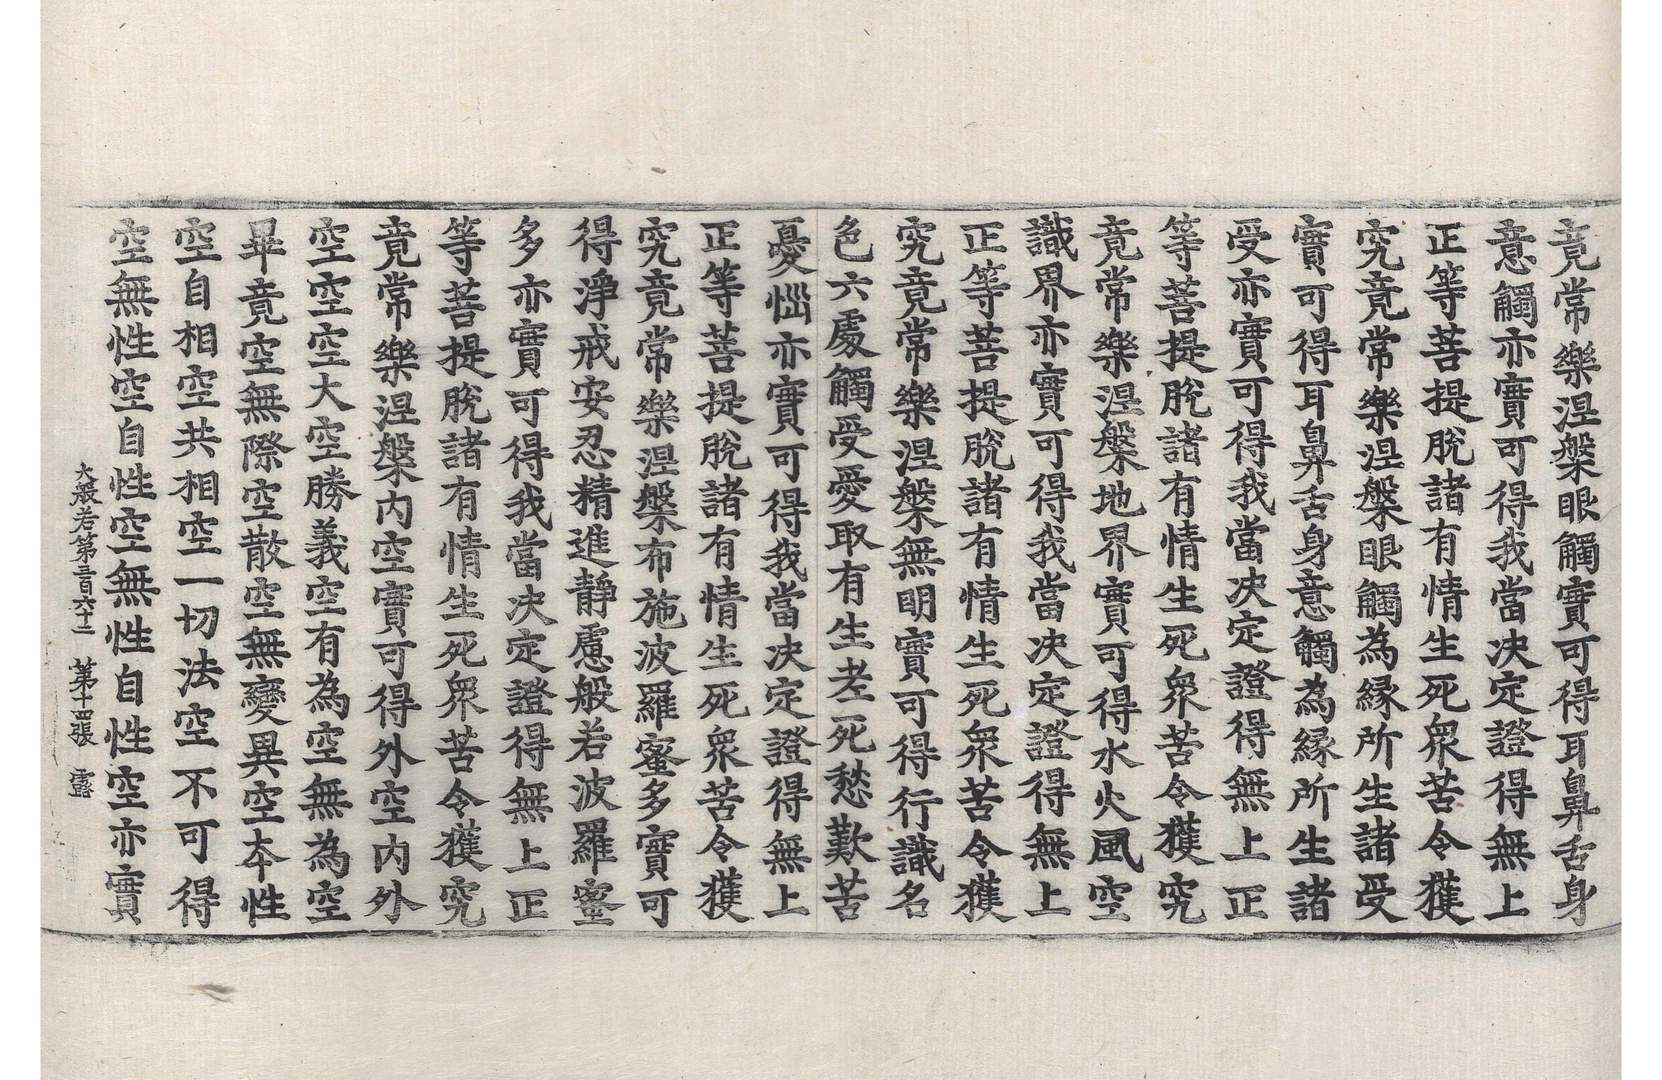 竟常樂涅槃眼觸實可得耳鼻舌身
意觸亦實可得我當決定證得無上
正等菩提脫諸有情生死衆苦令獲
究竟常樂涅槃眼觸為緣所生諸受
實可得耳鼻舌身意觸為緣所生諸
受亦實可得我當決定證得無上正
等菩提脫諸有情生死衆苦令獲究
竟常樂涅槃地界實可得水火風空
識界亦實可得我當決定證得無上
正等菩提脫諸有情生死衆苦令獲
究竟常樂涅槃無明實可得行識名
色六處觸受愛取有生老死愁歎苦
憂惱亦實可得我當決定證得無上
正等菩提脫諸有情生死衆苦令獲
究竟常樂涅槃布施波羅蜜多實可
得淨戒安忍精進靜慮般若波羅蜜
多亦實可得我當決定證得無上正
等菩提脫諸有情生死衆苦令獲究
竟常樂涅槃內空實可得外空內外
空空空大空勝義空有為空無為空
畢竟空無際空散空無變異空本性
空自相空共相空一切法空不可得
空無性空自性空無性自性空亦實
大般若第三百六十二　第十四張　露